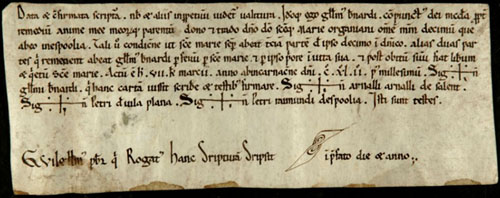 Data et c̄firmata scriptū. nō et aliis inspetiuū uideēt ualitura. Jccq̄ ego Gll̄mꝰ bnardi. cōpunctꝰ dei mcdia. ꝓpt
remediū anime mee meorūq̄ parentū dono et trado dn̄o dō sc̄eq̄ Marie organiani om̄e meū decimū que
abeo inespoolia. tali ū condicione ut sc̄e marie sep̄ aboit tcia parte d̄ ipso decimo ī dn̄ico. alias duas par
tes q̄ remanent abeat Gll̄mꝰ bnardi ꝑ feuū ꝑ sc̄e marie. et ꝑ ipso pore ī uitta sua. et post obitū suū hat libum
Actū ē h̄. VII. k̄ marcii. anno abincarnac̄ne dn̄i. c̄. XL. II. p̄ millesimū. Sig+n̄
gllmi bnardi. q̄ hanc cartā uissit scribe et testibꝰ firmare. Sig+n̄ arnalli arnalli de salent.
Sig+n̄ petri d̄ uila plana. Sig+n̄ petri raimundi despoolia. Isti sunt testes.
Gwilellmꝰ pb̄r q̄ Rogatꝰ hanc scripturā scripsit īp̄fato die et anno